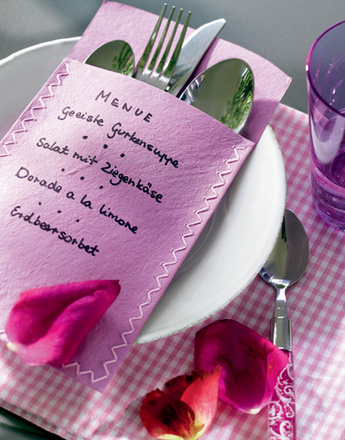 MENUE
Geeiste Gurkensuppe
Salat mit Ziegenkäse
Dorade a la limone
Erdbeersorbet